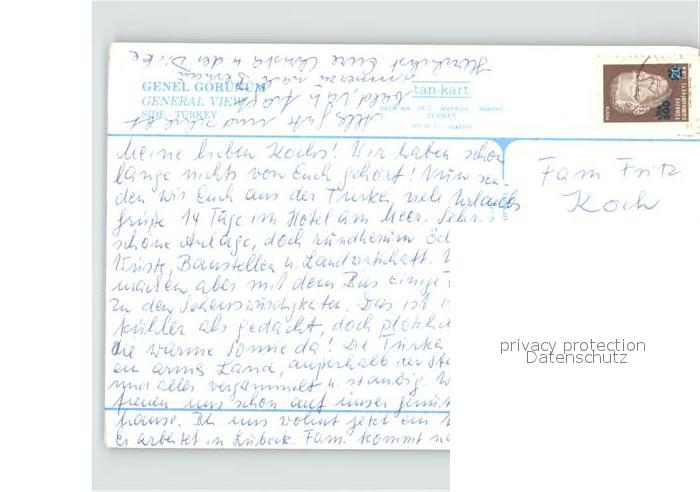 GENEL GÖRÜNÜM
GENERAL VIEW
SIDE TURKEY
tan-kart
TURKEY
Herzlichst Eure Christa u. der Dicke
Alles Gute und
Meine lieben Kochs! Wir haben schon
lange nichts von Euch gehört! Nun sen-
den wir Euch aus der Türkei viele Urlaubs
grüße 14 Tage im Hotel am Meer. Sehr
schöne Anlage, doch rundherum öd
Wüste, Baustellen u. Landwirtschaft. W
machen aber mit dem Bus einige
zu den Sehenswürdigkeiten. Das ist
kühler als gedacht, doch plötzlich
die warme Sonne da! Die Türkei
ein armes Land, außerhalb der Stä
und alles vergammelt u. staubig. W
freuen uns schon auf unser gemüt
hause. Bei uns wohnt jetzt ein
er arbeitet in Lübeck. Fam. kommt na
Fam Fritz
Koch
privacy protection
Datenschutz